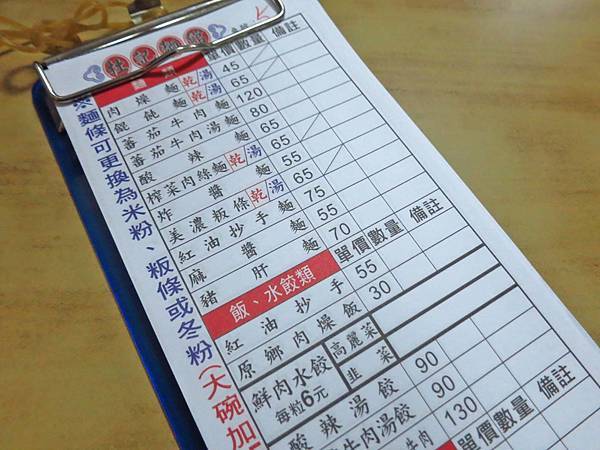 單價 數量 備註
肉燥麵 乾/湯 45
餛飩麵 乾/湯 65
蕃茄牛肉麵 120
蕃茄牛肉湯麵 80
酸辣麵 65
榨菜肉絲麵 乾/湯 65
炸醬麵 55
美濃粄條 乾/湯 65
紅油抄手麵 75
麻醬麵 55
豬肝麵 70
飯、水餃類 單價 數量 備註
紅油抄手 55
原鄉肉燥飯 30
鮮肉水餃 每粒6元 高麗菜
韭菜
酸辣湯餃 90
牛肉湯餃 90
牛肉 130
單價 數量 備註
麵條可更換為米粉、粄條或冬粉(大碗加